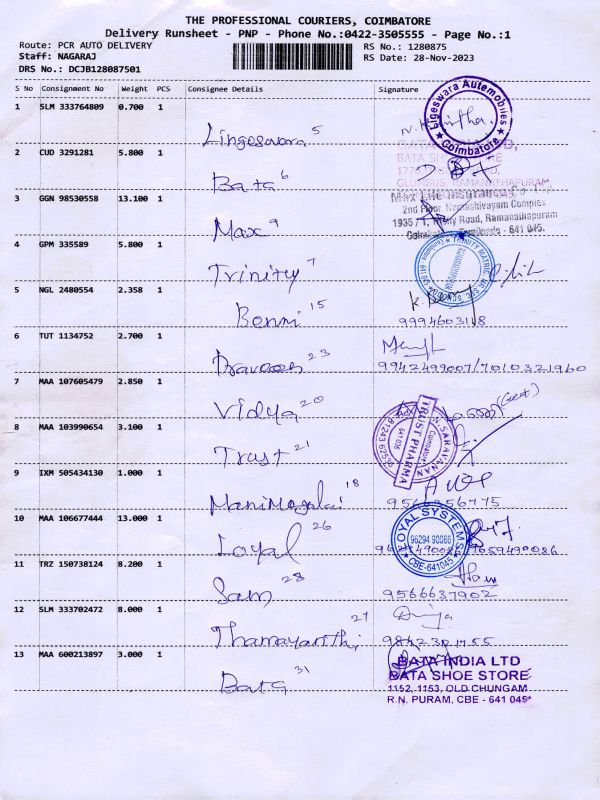 THE PROFESSIONAL COURIERS, COIMBATORE
Delivery Runsheet - PNP - Phone No.:0422-3505555 - Page No.:1
Route: PCR AUTO DELIVERY
RS No.: 1280875
Staff: NAGARAJ
RS Date: 28-Nov-2023
DRS No.: DCJB128087501
S No Consignment No Weight PCS Consignee Details Signature
1 SLM 333764809 0.700 1
Lingeswara 5
Ligeswara Automobiles
Coimbatore
2 CUD 3291281 5.800 1
Bata 6
BATA SHOE STORE
RAMANATHAPURAM
3 GGN 98530558 13.100 1
Max 9
2nd Floor, Kumashivayam Complex
1935 / 1, Trichy Road, Ramanathapuram
641 045.
4 GPM 335589 5.800 1
Trinity 7
TRINITY MATRIC. HR. SEC. SCHOOL
5 NGL 2480554 2.358 1
Benni 15
9994603118
6 TUT 1134752 2.700 1
Praveen 23
9942499007/7010321960
7 MAA 107605479 2.850 1
Vidya 20
8 MAA 103990654 3.100 1
Trust 21
TRUST PHARMA
N. SARAVANAN
Coimbatore
641 036
9 IXM 505434130 1.000 1
Manimegalai 18
9566356775
10 MAA 106677444 13.000 1
Loyal 26
LOYAL SYSTEMS
96294 90086
CBE-641045
9629490086 9659490086
11 TRZ 150738124 8.200 1
Sam 28
9566637902
12 SLM 333702472 8.000 1
Thamayanthi 27
9842301755
13 MAA 600213897 3.000 1
Bata 31
BATA INDIA LTD
BATA SHOE STORE
1152, 1153, OLD CHUNGAM
R.N. PURAM, CBE - 641 045